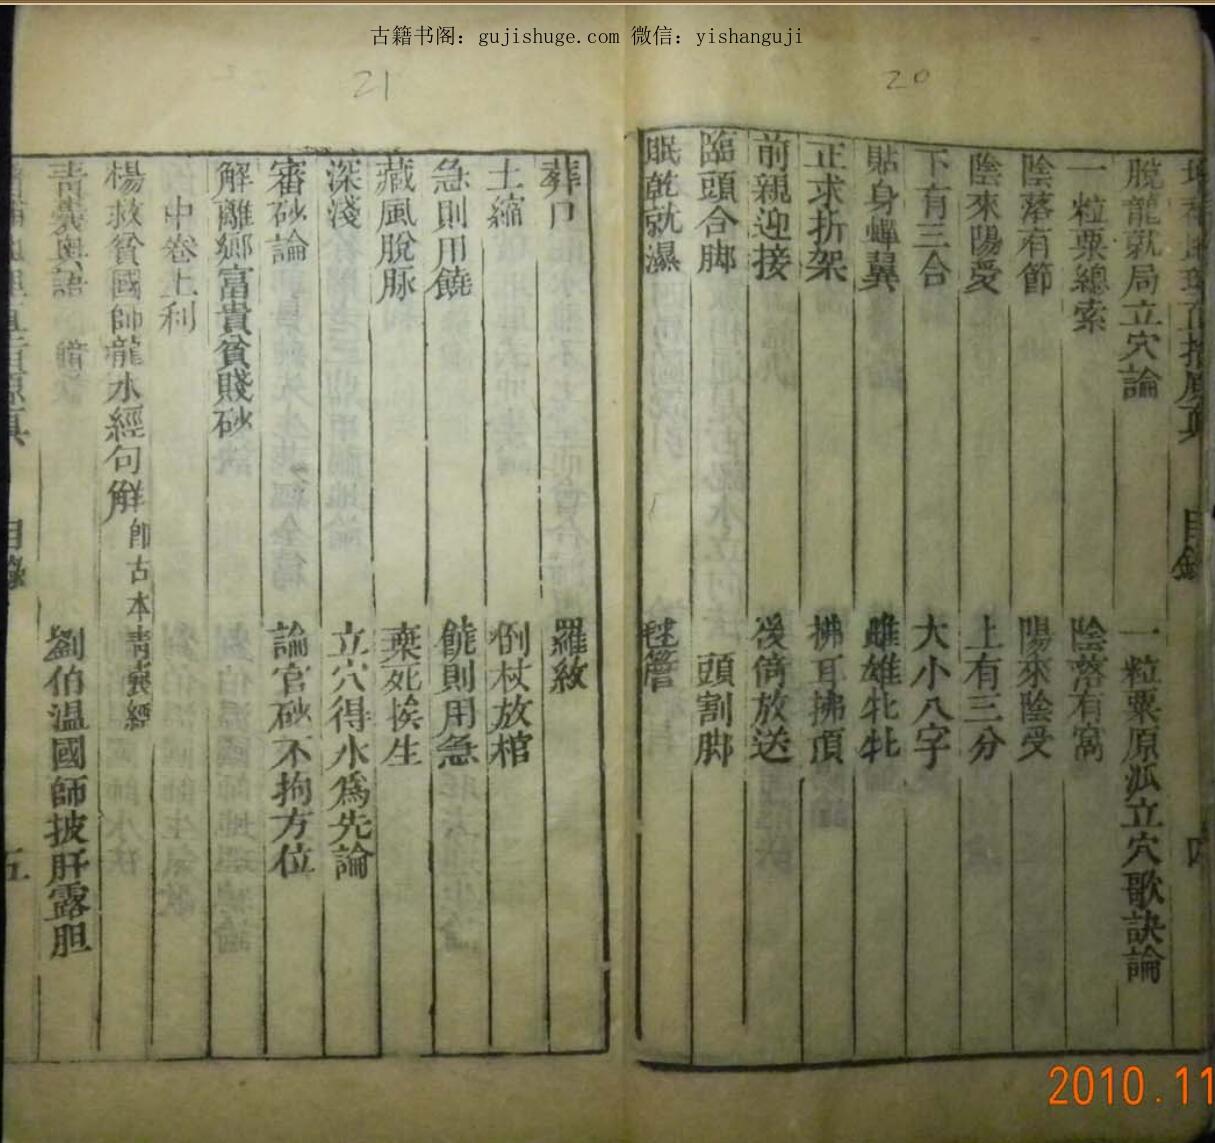 古籍书阁：gujishuge.com 微信：yishanguji
20
目錄
脫龍就局立穴論 一粒粟原派立穴歌訣論
一粒粟總索 陰落有窩
陰落有節 陽來陰受
陰來陽受 上有三分
下有三合 大小八字
貼身蟬翼 雌雄牝牡
正求折架 拂耳拂頂
前親迎接 後倚放送
臨頭合脚 頭割脚
眠乾就濕 毬簷
21
葬口 羅紋
土縮 倒杖放棺
急則用饒 饒則用急
藏風脫脉 棄死挨生
深淺 立穴得水爲先論
審砂論 論官砂不拘方位
解離鄉富貴貧賤砂
中卷上利
楊救貧國師龍水經句解 卽古本靑囊經
靑囊奥語 劉伯溫國師披肝露胆
五
2010.11